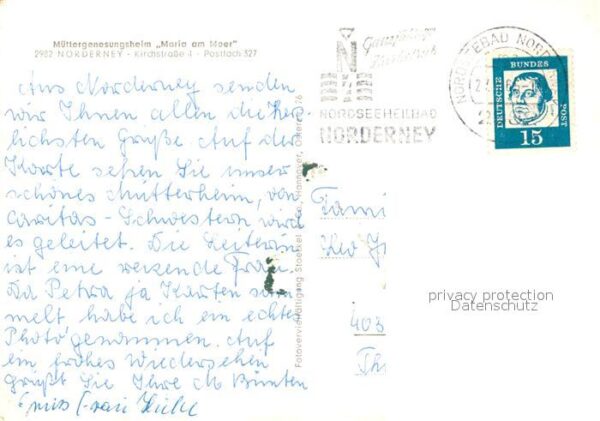 Müttergenesungsheim „Maria am Meer"
2982 NORDERNEY - Kirchstraße 4 - Postfach 327
Aus Norderney senden
wir Ihnen allen die herz-
lichsten Grüße. Auf der
Karte sehen Sie unser
schönes Mütterheim, von
Caritas-Schwestern wird
es geleitet. Die Leiterin
ist eine reizende Frau.
Da Petra ja Karten sam-
melt habe ich ein echtes
Photo genommen. Auf
ein frohes Wiedersehen
grüßt Sie Ihre
Fotovervielfältigung
Hannover,
N
NORDSEEHEILBAD
NORDERNEY
NORDSEEBAD NORD
DEUTSCHE
BUNDES
POST
15
Fami
403
privacy protection
Datenschutz